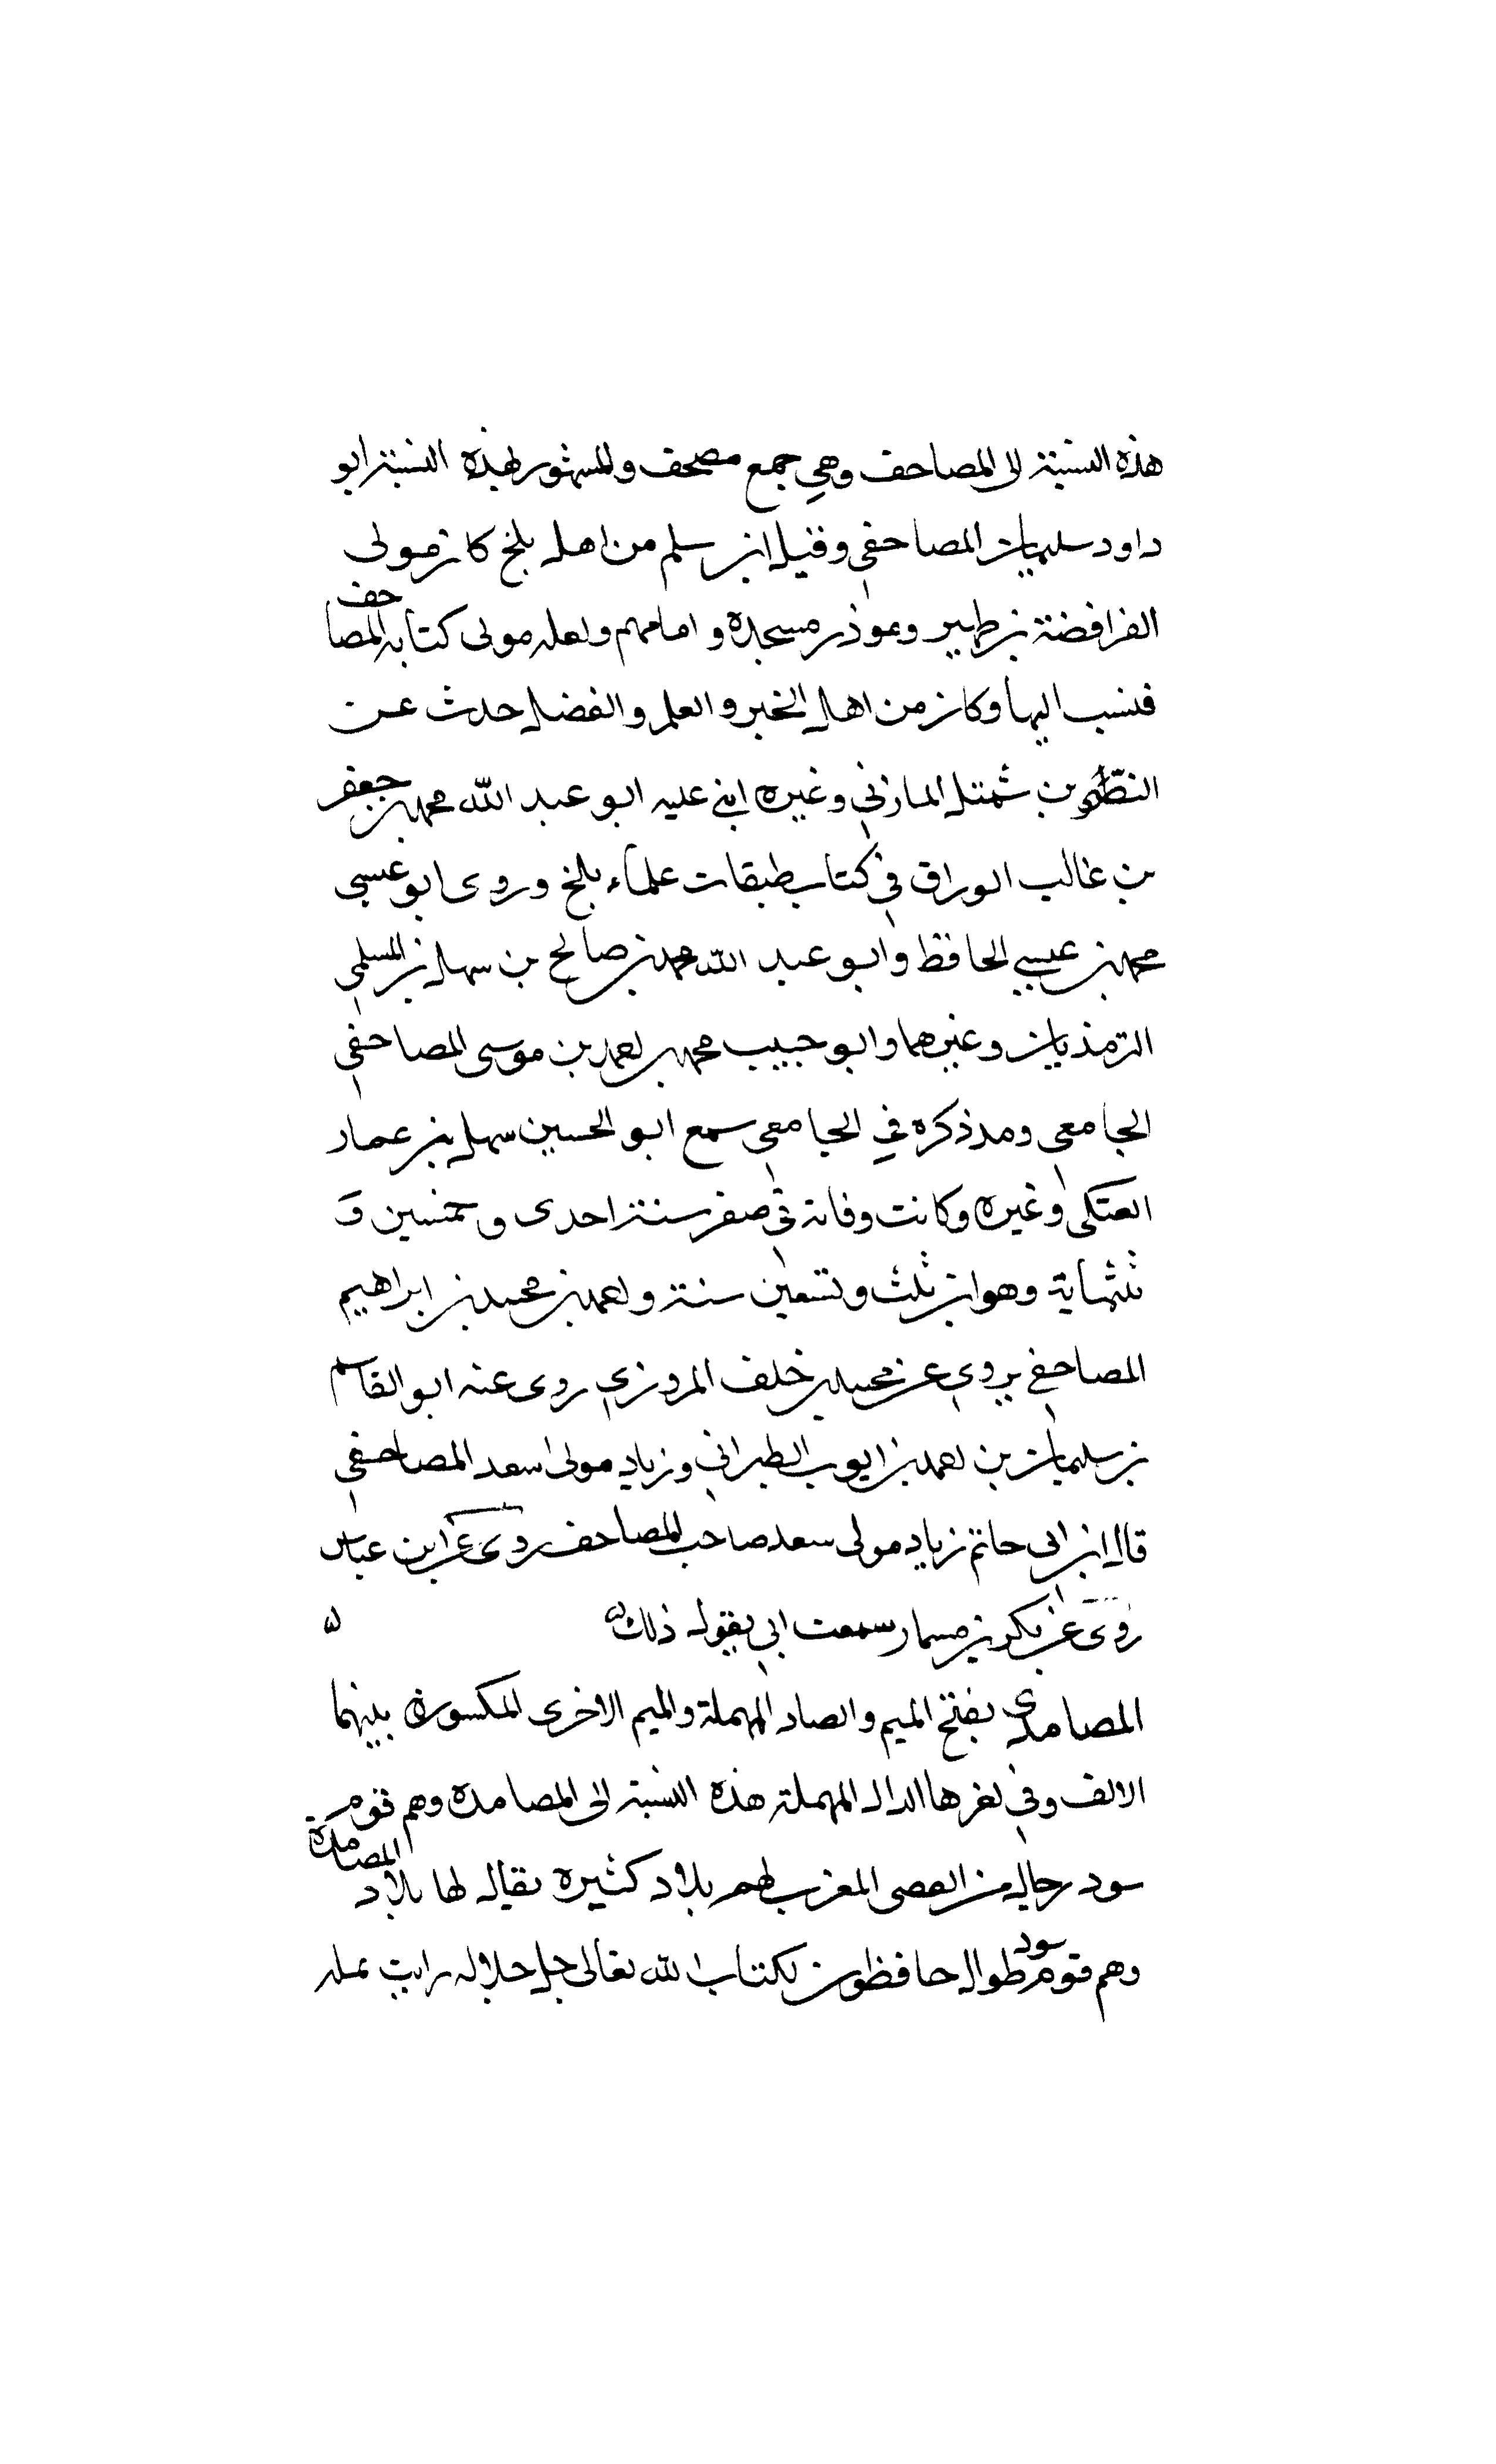 هذه النسبة الى المصاحف وهي جمع مصحف والمشهور بهذه النسبة ابو
داود سليمان المصاحفي وقيل ابن سلم من اهل بلخ كان مولى
الفرافضة بن ظهير وموذن مسجده وامامهم ولعله مولى كتابه المصاحف
فنسب اليها وكان من اهل الخير والعلم والفضل حدث عن
النضر بن شميل المازني وغيره اثنى عليه ابو عبد الله محمد بن جعفر
بن غالب الوراق في كتاب طبقات علماء بلخ وروى ابو عيسى
محمد بن عيسى الحافظ وابو عبد الله محمد بن صالح بن سهل بن المسلمي
الترمذيان وغيرهما وابو حبيب محمد بن احمد بن موسى المصاحفي
الجامعي ومد ذكره في الجامعي سمع ابو الحسين سهل بن عمار
العتكى وغيره وكانت وفاته في صفر سنة احدى وخمسين و
ثلثماية وهو ابن ثلث وتسعين سنة واحمد بن محمد بن ابراهيم
المصاحفي يروي عن محمد بن خلف المروزي روى عنه ابو القاسم
بن سليمان بن احمد بن ايوب الطبراني وزياد مولى سعد المصاحفي
قال ابن ابى حاتم زياد مولى سعد صاحب المصاحف روى عن ابن عباس
روى عن بكير بن مسمار سمعت ابي يقول ذلك
المصامدى بفتح الميم والصاد المهملة والميم الاخرى المكسورة بينهما
الالف وفي اخرها الدال المهملة هذه النسبة الى المصامدة وهم قوم
سود رجالة من اقصى المغرب لهم بلاد كثيرة يقال لها بلاد المصامدة
وهم قوم سود طوال حافظون لكتاب الله تعالى جل جلاله رايت